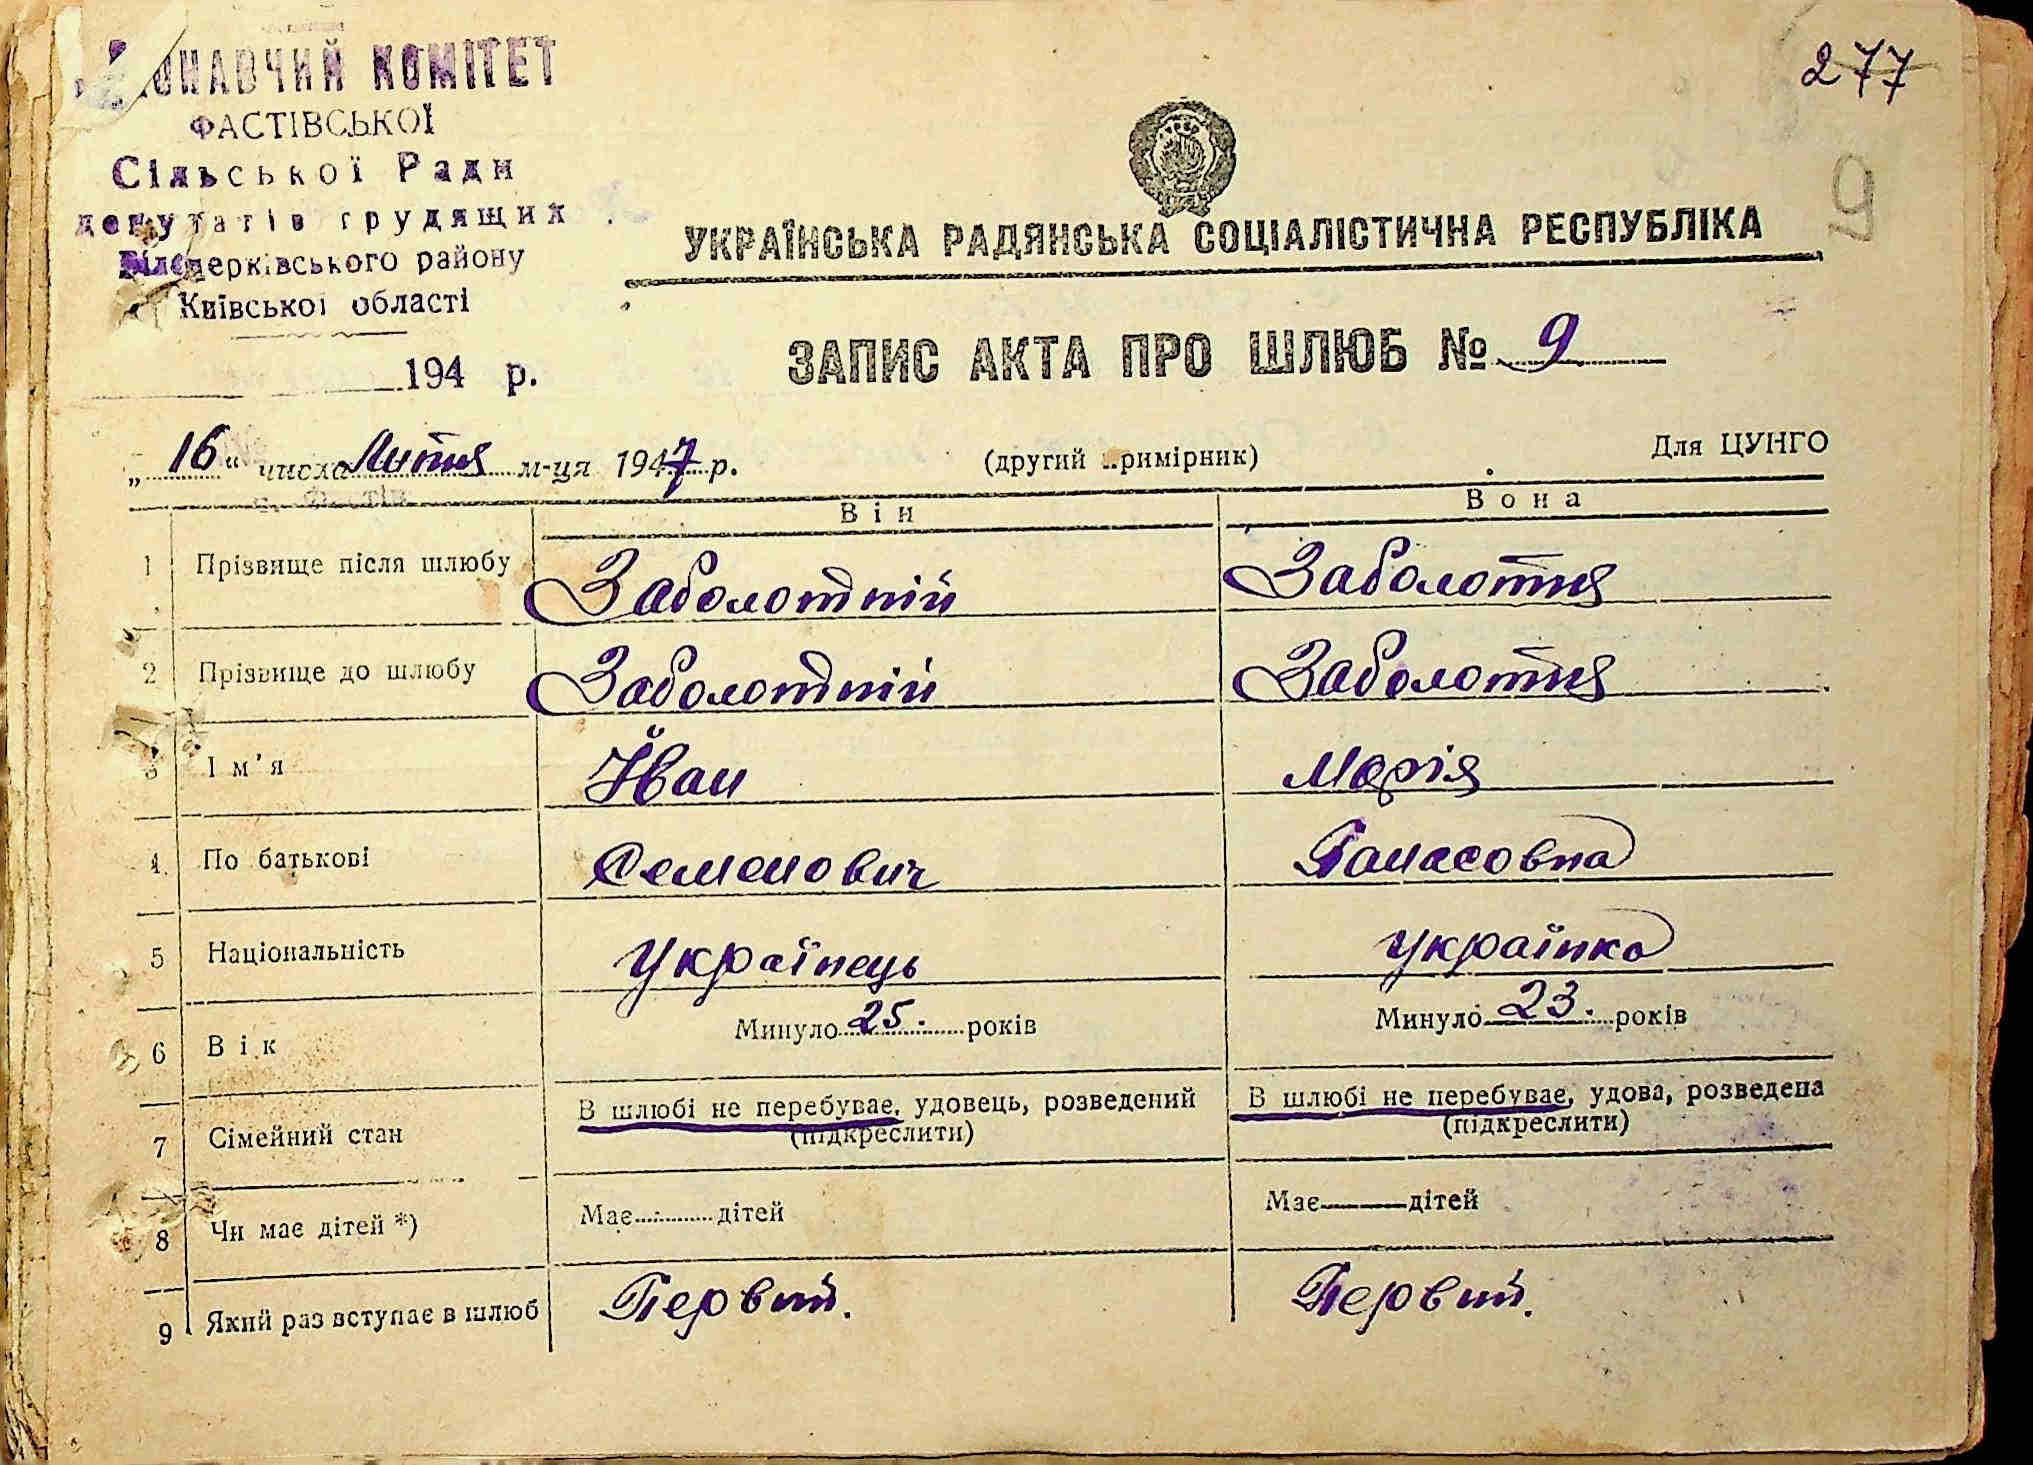 277
ВИКОНАВЧИЙ КОМІТЕТ
ФАСТІВСЬКОЇ
Сільської Ради
депутатів трудящих
Білоцерківського району
Київської області
194 р.
9
УКРАЇНСЬКА РАДЯНСЬКА СОЦІАЛІСТИЧНА РЕСПУБЛІКА
ЗАПИС АКТА ПРО ШЛЮБ № 9
„ 16 “ числа Липня м-ця 1947 р. (другий примірник) Для ЦУНГО
Він Вона
1 Прізвище після шлюбу Заболотній Заболотня
2 Прізвище до шлюбу Заболотній Заболотня
3 Ім'я Йван Марія
4 По батькові Семенович Панасовна
5 Національність Українець Українка
6 Вік Минуло 25. років Минуло 23. років
7 Сімейний стан В шлюбі не перебуває, удовець, розведений (підкреслити) В шлюбі не перебуває, удова, розведена (підкреслити)
8 Чи має дітей *) Має дітей Має — дітей
9 Який раз вступає в шлюб Первий. Первий.